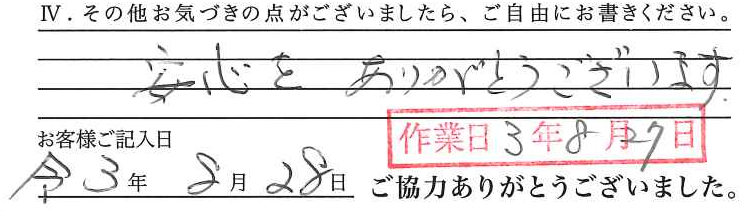 Ⅳ．その他お気づきの点がございましたら、ご自由にお書きください。
安心を ありがとうございます
お客様ご記入日
作業日 3年8月27日
令3年 8月28日
ご協力ありがとうございました。